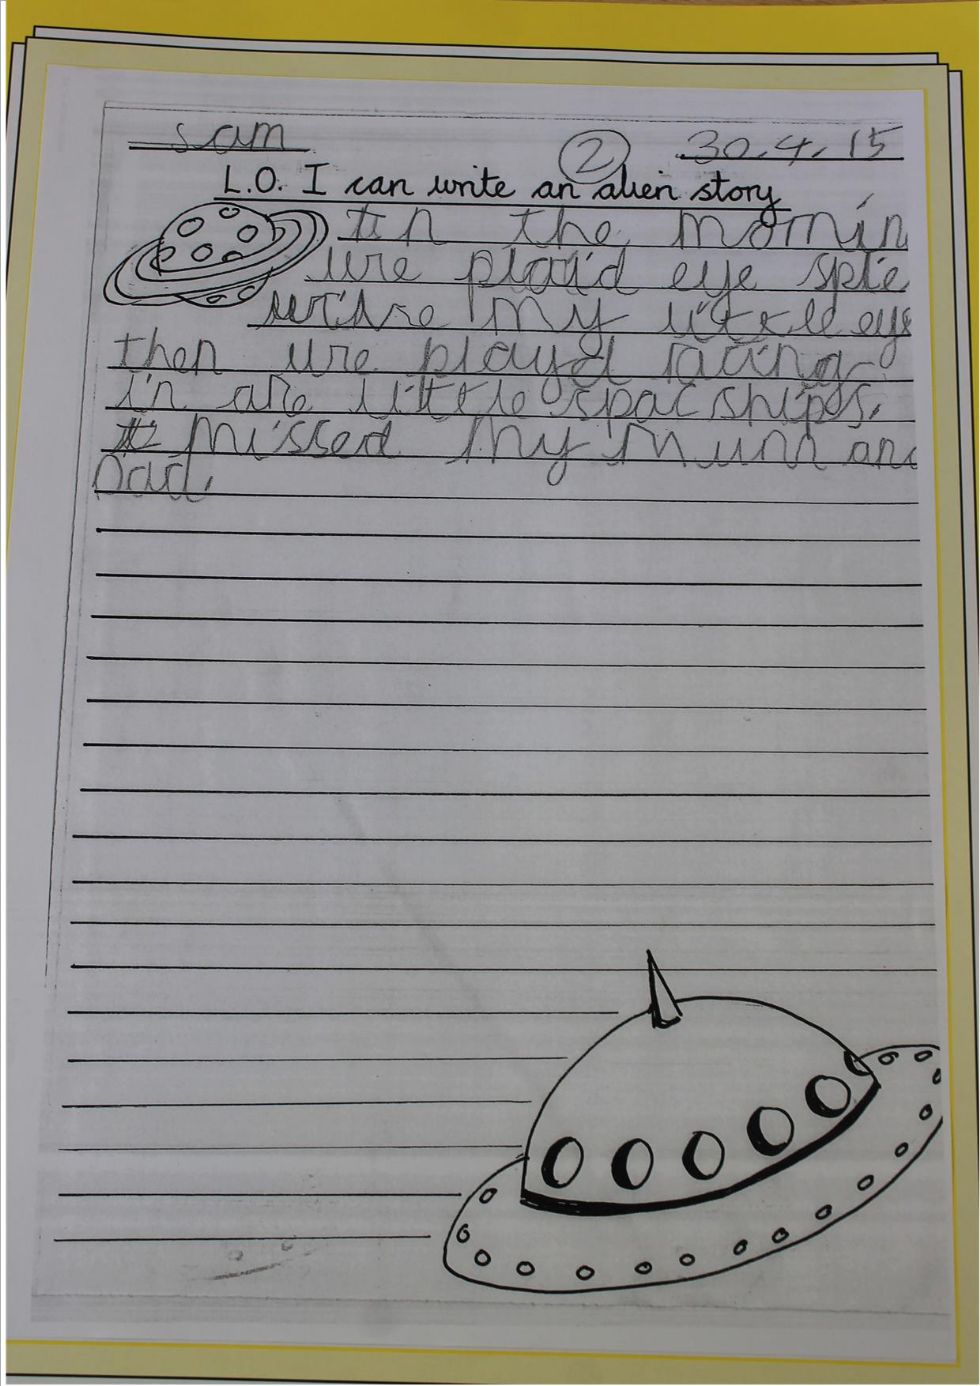 sam
2
30.4.15
L.O. I can write an alien story
In the mornin
we plaid eye spie
withe my little eye
then we playd racing
in are little spac ships.
I missed my mum and
Dad.